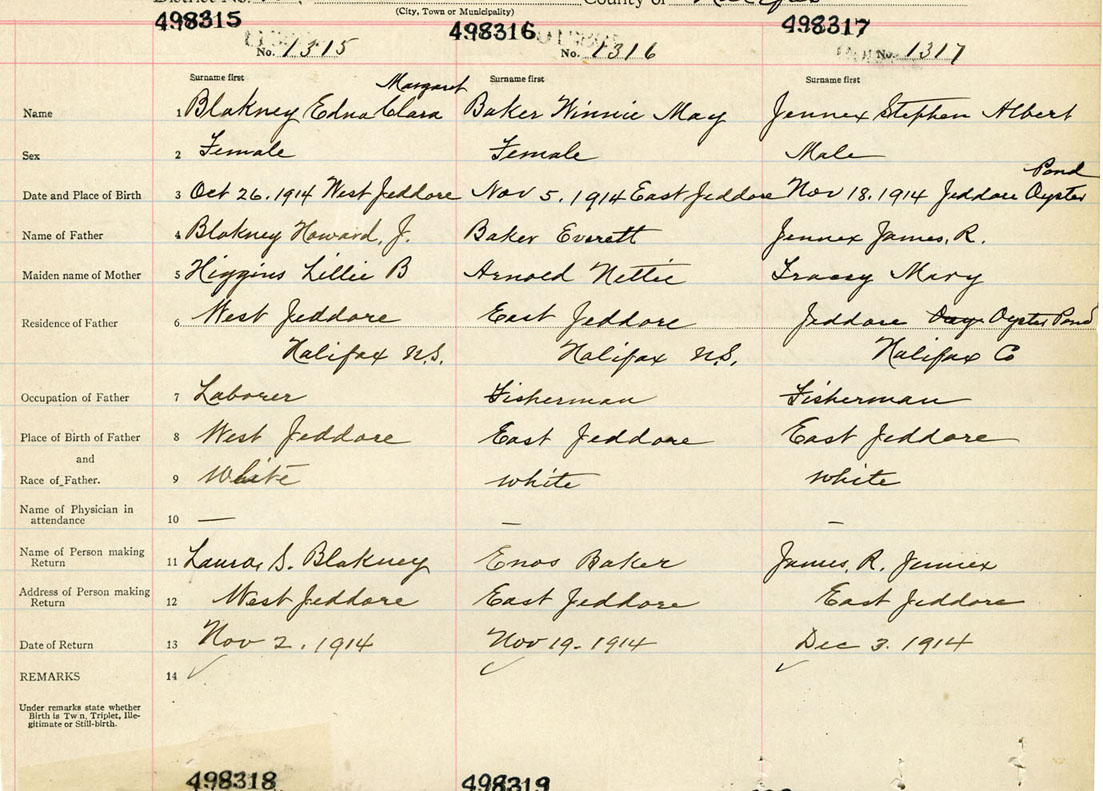 District No. County of Halifax
(City, Town or Municipality)
498315 498316 498317
No. 1315 No. 1316 No. 1317
Surname first Surname first Surname first
Margaret
Name 1 Blakney Edna Clara Baker Winnie May Jennex Stephen Albert
Sex 2 Female Female Male
Pond
Date and Place of Birth 3 Oct 26. 1914 West Jeddore Nov 5. 1914 East Jeddore Nov 18. 1914 Jeddore Oyster
Name of Father 4 Blakney Howard, J. Baker Everett Jennex James, R.
Maiden name of Mother 5 Higgins Lillie B Arnold Nettie Tracey Mary
Residence of Father 6 West Jeddore East Jeddore Jeddore Oyster Pond
Halifax N.S. Halifax N.S. Halifax Co
Occupation of Father 7 Laborer Fisherman Fisherman
Place of Birth of Father 8 West Jeddore East Jeddore East Jeddore
and
Race of Father. 9 White white white
Name of Physician in
attendance 10 — – –
Name of Person making
Return 11 Laura S. Blakney Enos Baker James, R. Jennex
Address of Person making
Return 12 West Jeddore East Jeddore East Jeddore
Date of Return 13 Nov 2. 1914 Nov 19. 1914 Dec 3. 1914
REMARKS 14
Under remarks state whether
Birth is Twin, Triplet, Ille-
gitimate or Still-birth.
498318 498319